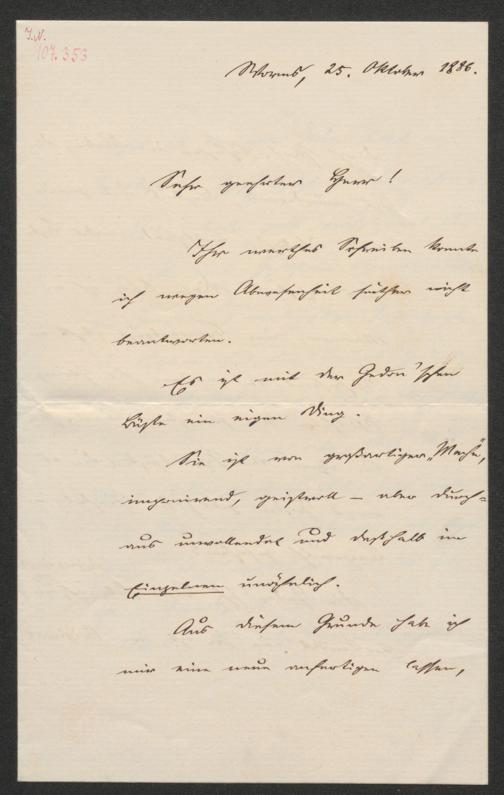 I.N.
107.353
Worms, 25. Oktober 1886.
Sehr geehrter Herr!
Ihr werthes Schreiben konnte
ich wegen Abwesenheit früher nicht
beantworten.
Es ist mit der Gedon'schen
Büste ein eigen Ding.
Sie ist von großartiger „Mache“,
imponirend, geistvoll – aber durch=
aus unvollendet und deßhalb im
Einzelnen unähnlich.
Aus diesem Grunde habe ich
mir eine neue anfertigen lassen,